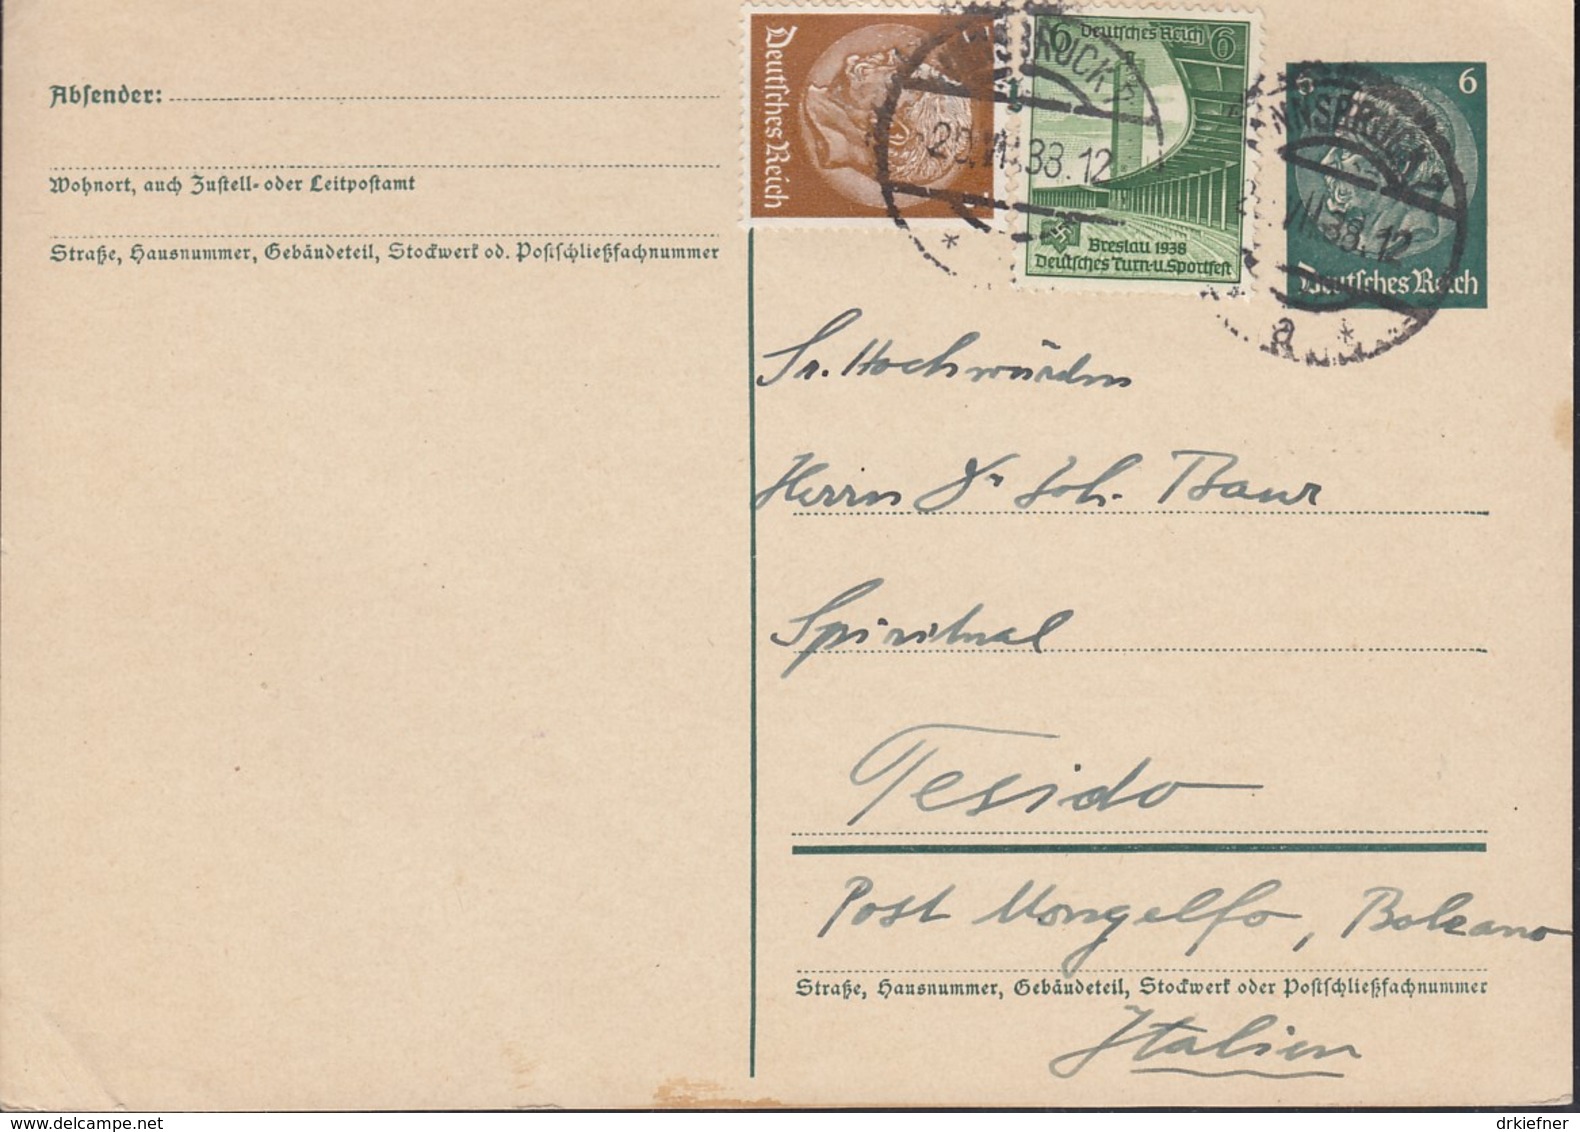 Absender:
Wohnort, auch Zustell- oder Leitpostamt
Straße, Hausnummer, Gebäudeteil, Stockwerk od. Postschließfachnummer
Deutsches Reich
3
6 Deutsches Reich 6
Breslau 1938
Deutsches Turn-u. Sportfest
INNSBRUCK 2
b
20.VII.38.12
*
6 6
Deutsches Reich
INNSBRUCK 2
VII.38.12
a *
Sr. Hochwürden
Herrn Dr Joh. Baur
Spiritual
Tesido
Post Mongelfo, Bolzano
Straße, Hausnummer, Gebäudeteil, Stockwerk oder Postschließfachnummer
Italien
delcampe.net
drkiefner